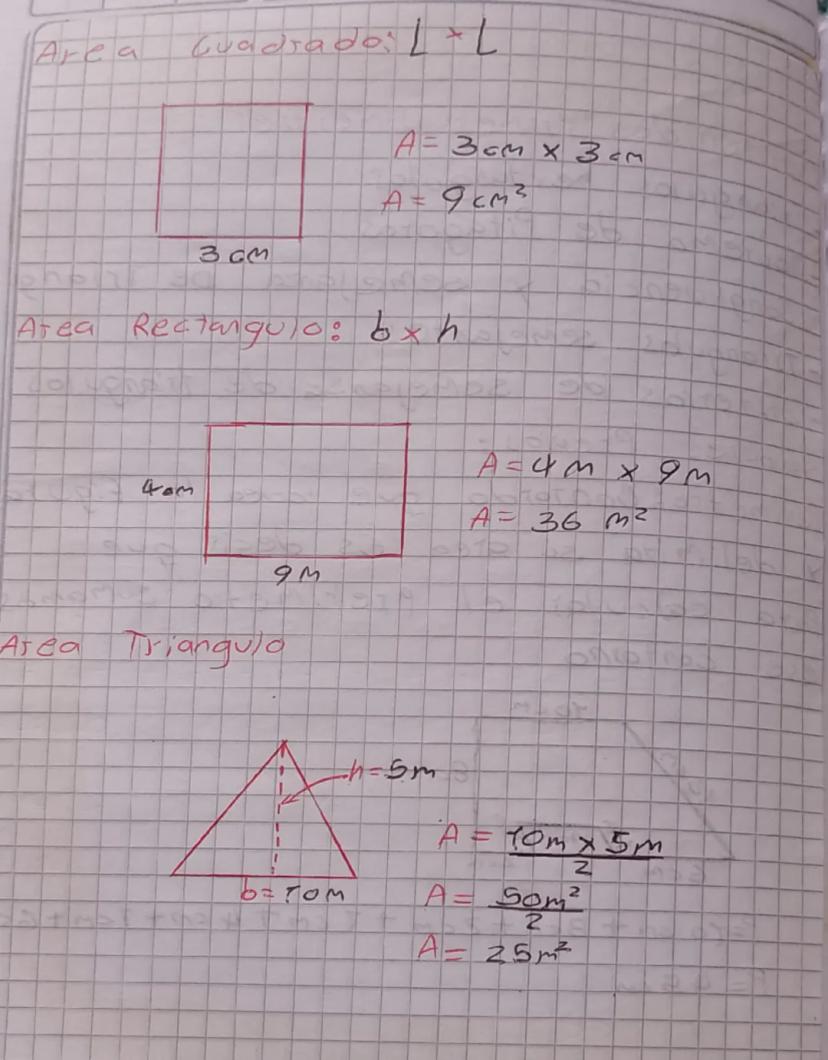 Area Cuadrado: L × L
A = 3cm × 3cm
A = 9cm²
3 cm
Area Rectangulo: b × h
4cm
A = 4m × 9m
A = 36 m²
9m
Area Triangulo
h = 5m
A = 10m × 5m
2
b = 10m
A = 50m²
2
A = 25m²